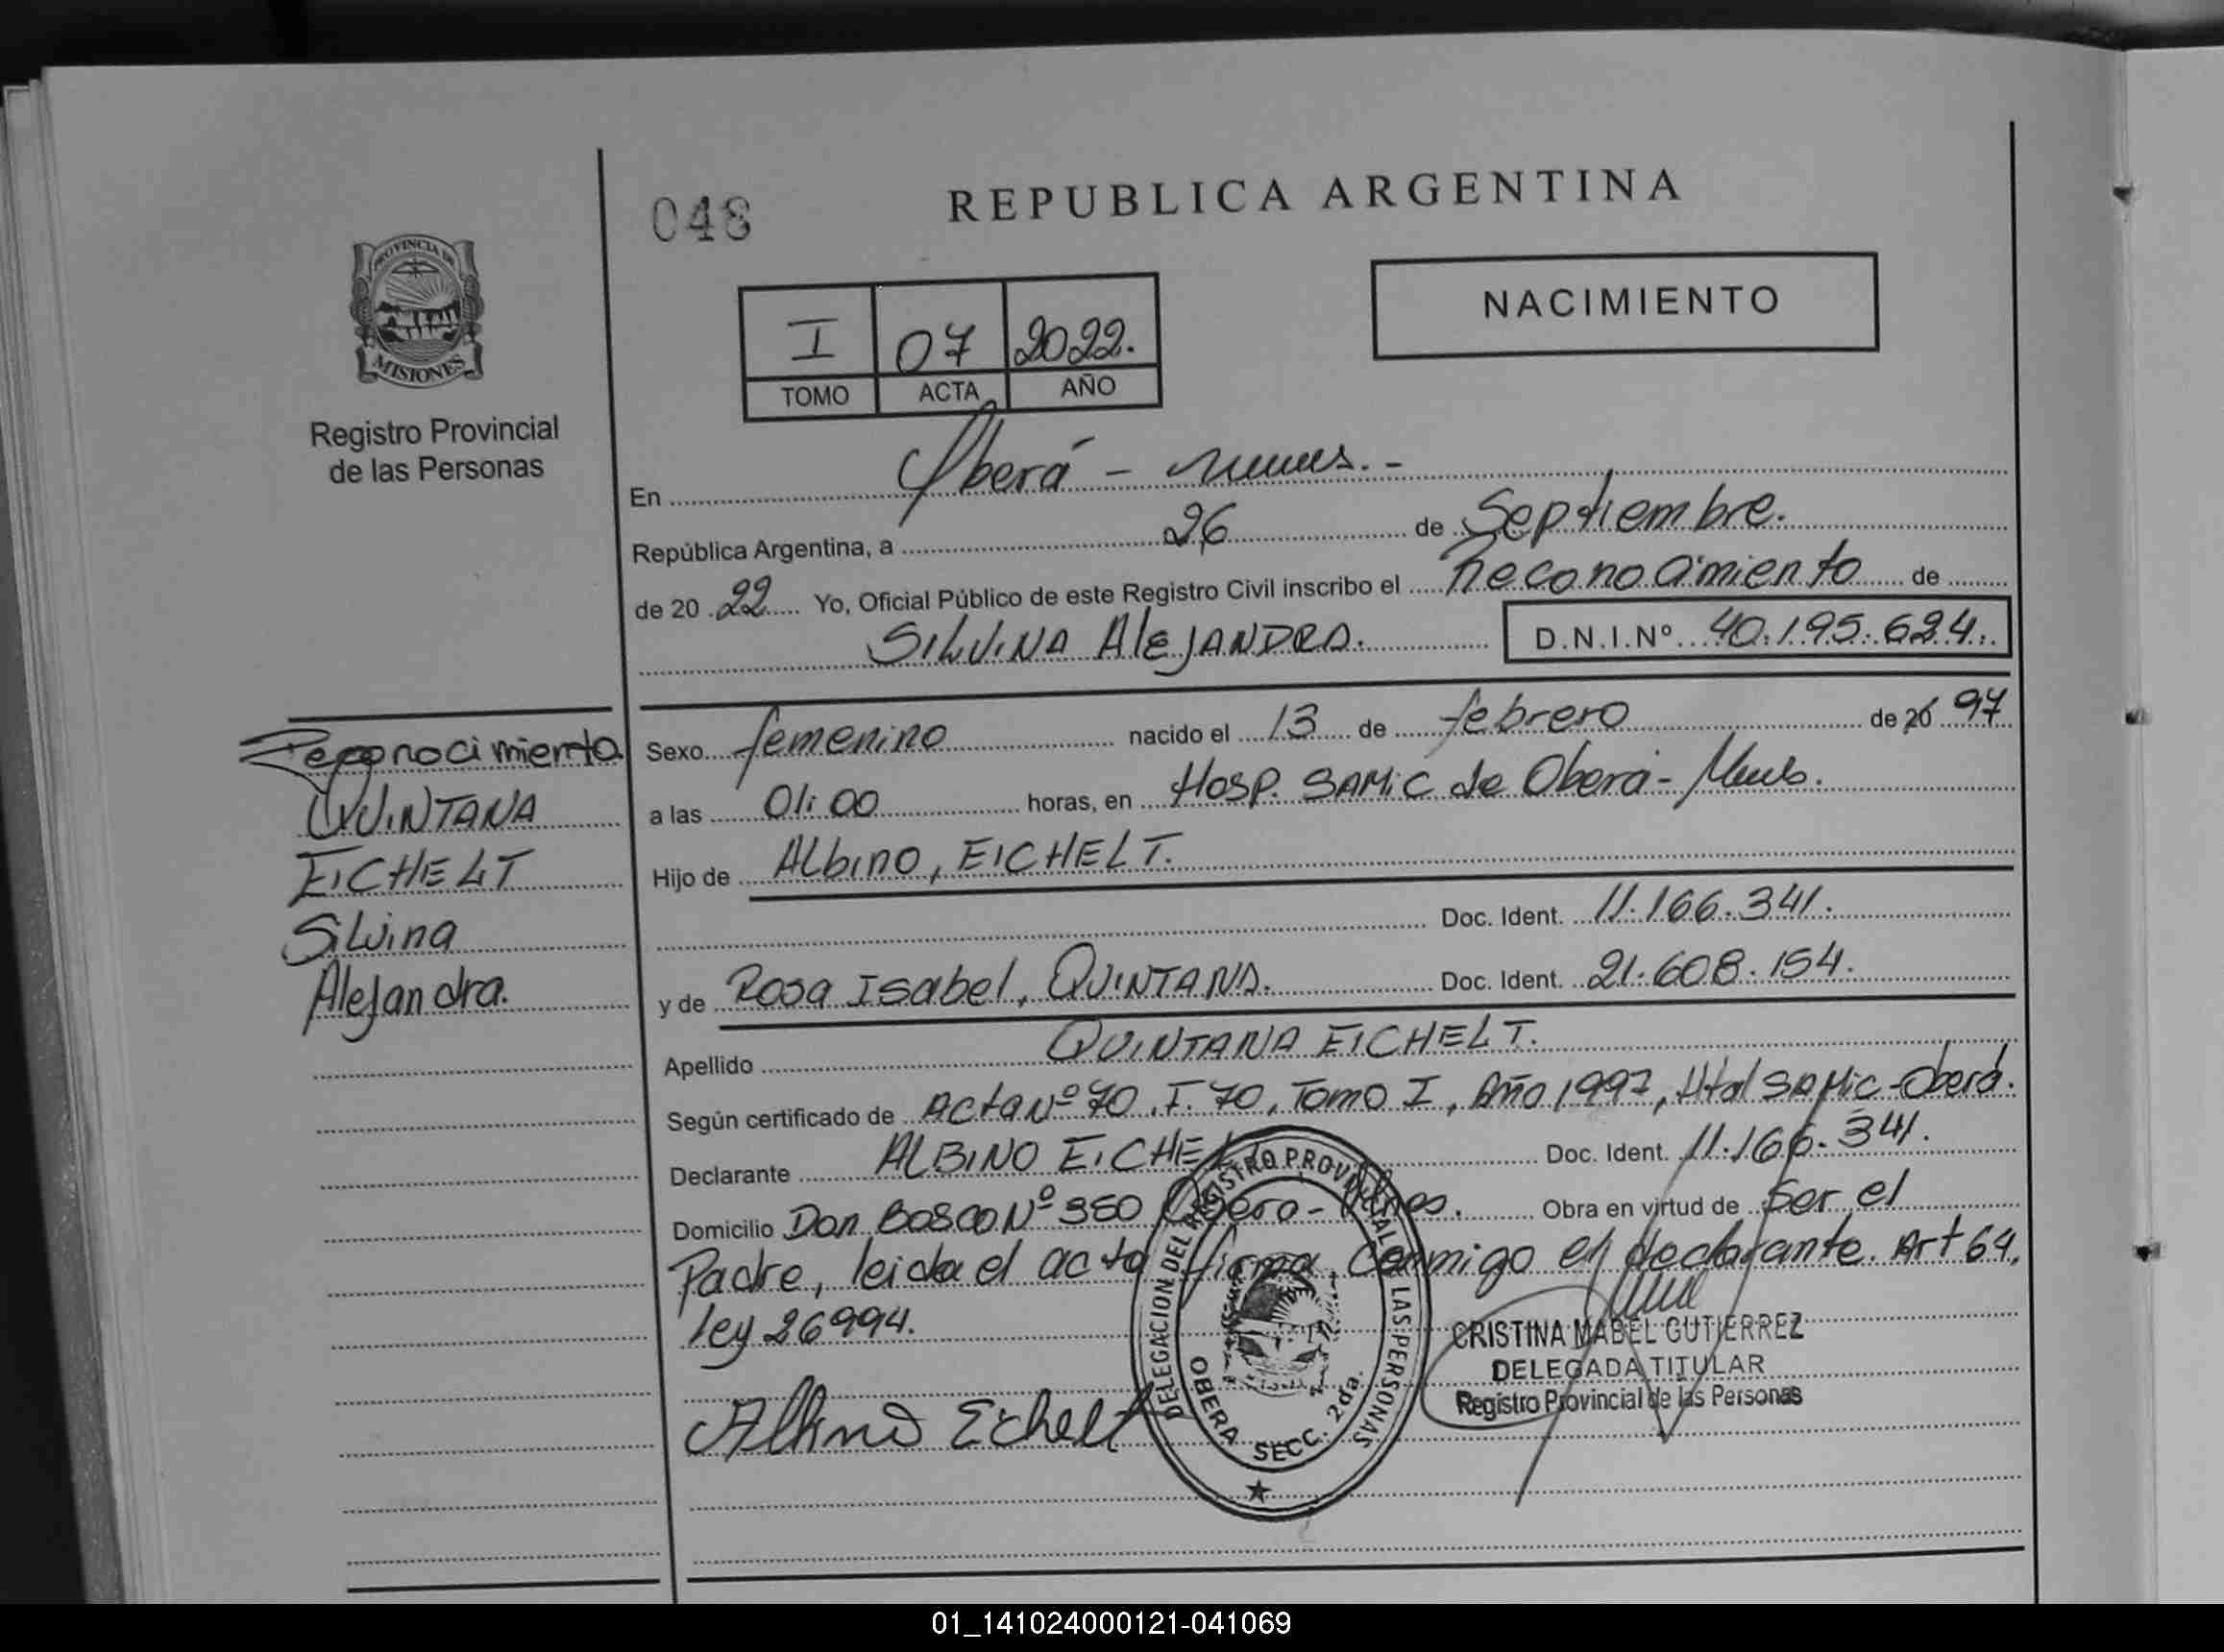 048
REPUBLICA ARGENTINA
PROVINCIA DE
MISIONES
Registro Provincial
de las Personas
NACIMIENTO
I 07 2022.
TOMO ACTA AÑO
En Oberá - Mnes. -
República Argentina, a 26 de Septiembre.
de 20 22 Yo, Oficial Público de este Registro Civil inscribo el Reconocimiento de
SILVINA AleJANDRA. D.N.I.Nº 40.195.624.
Reconocimiento
QUINTANA
EICHELT
Silvina
Alejandra.
Sexo femenino nacido el 13 de febrero de 20 97
a las 01:00 horas, en Hosp. SAMIC de Oberá - Mnes.
Hijo de Albino, EICHELT.
Doc. Ident. 11.166.341.
y de Rosa Isabel, QUINTANA. Doc. Ident. 21.608.154.
Apellido QUINTANA EICHELT.
Según certificado de Acta Nº 70, F. 70, Tomo I, Año 1997, Htal SAMIC-Oberá.
Declarante ALBINO EICHELT Doc. Ident. 11.166.341.
Domicilio Don Bosco Nº 350 Oberá - Mnes. Obra en virtud de Ser el
Padre, leida el acta firma conmigo el declarante. Art 64,
ley 26994.
Albino Echelt
DELEGACION DEL REGISTRO PROVINCIAL DE LAS PERSONAS
OBERA SECC. 2da.
CRISTINA MABEL GUTIERREZ
DELEGADA TITULAR
Registro Provincial de las Personas
01_141024000121-041069